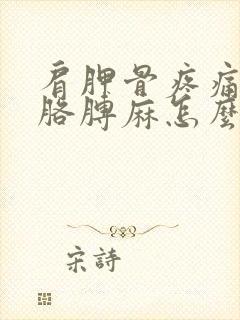 肩胛骨疼痛
胳膊麻怎麼
宋詩